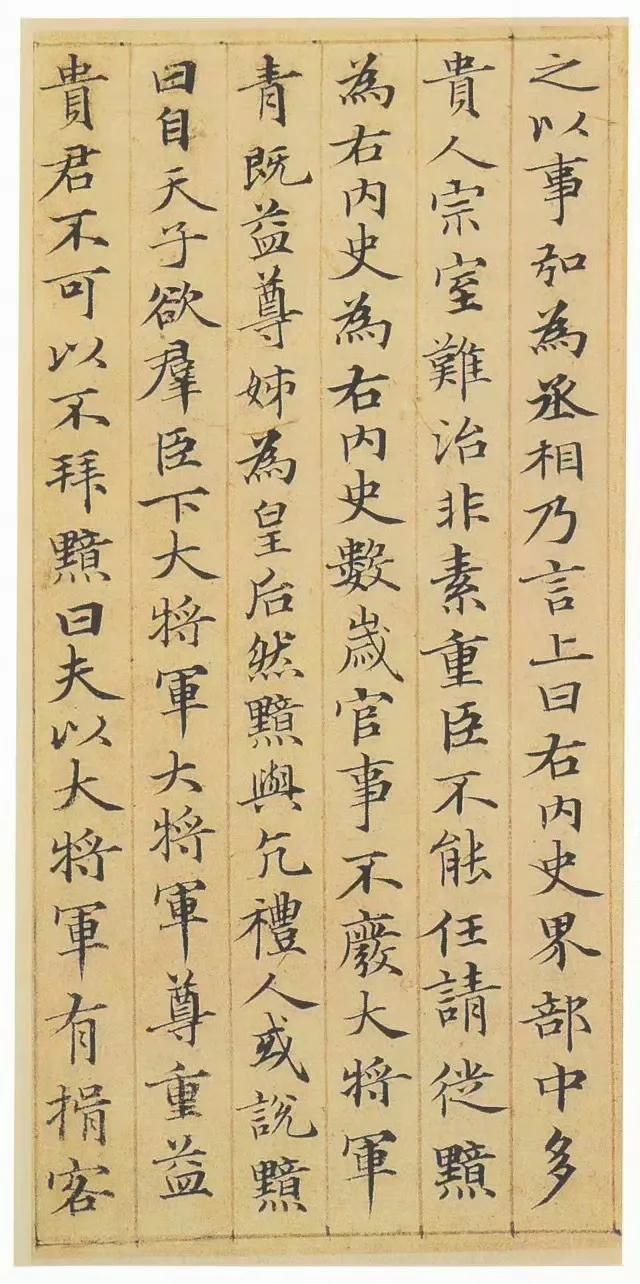 之以事弘為丞相乃言上曰右内史界部中多
貴人宗室難治非素重臣不能任請徙黯
為右内史為右内史數歲官事不廢大将軍
青既益尊姊為皇后然黯與亢禮人或說黯
曰自天子欲羣臣下大将軍大将軍尊重益
貴君不可以不拜黯曰夫以大将軍有揖客